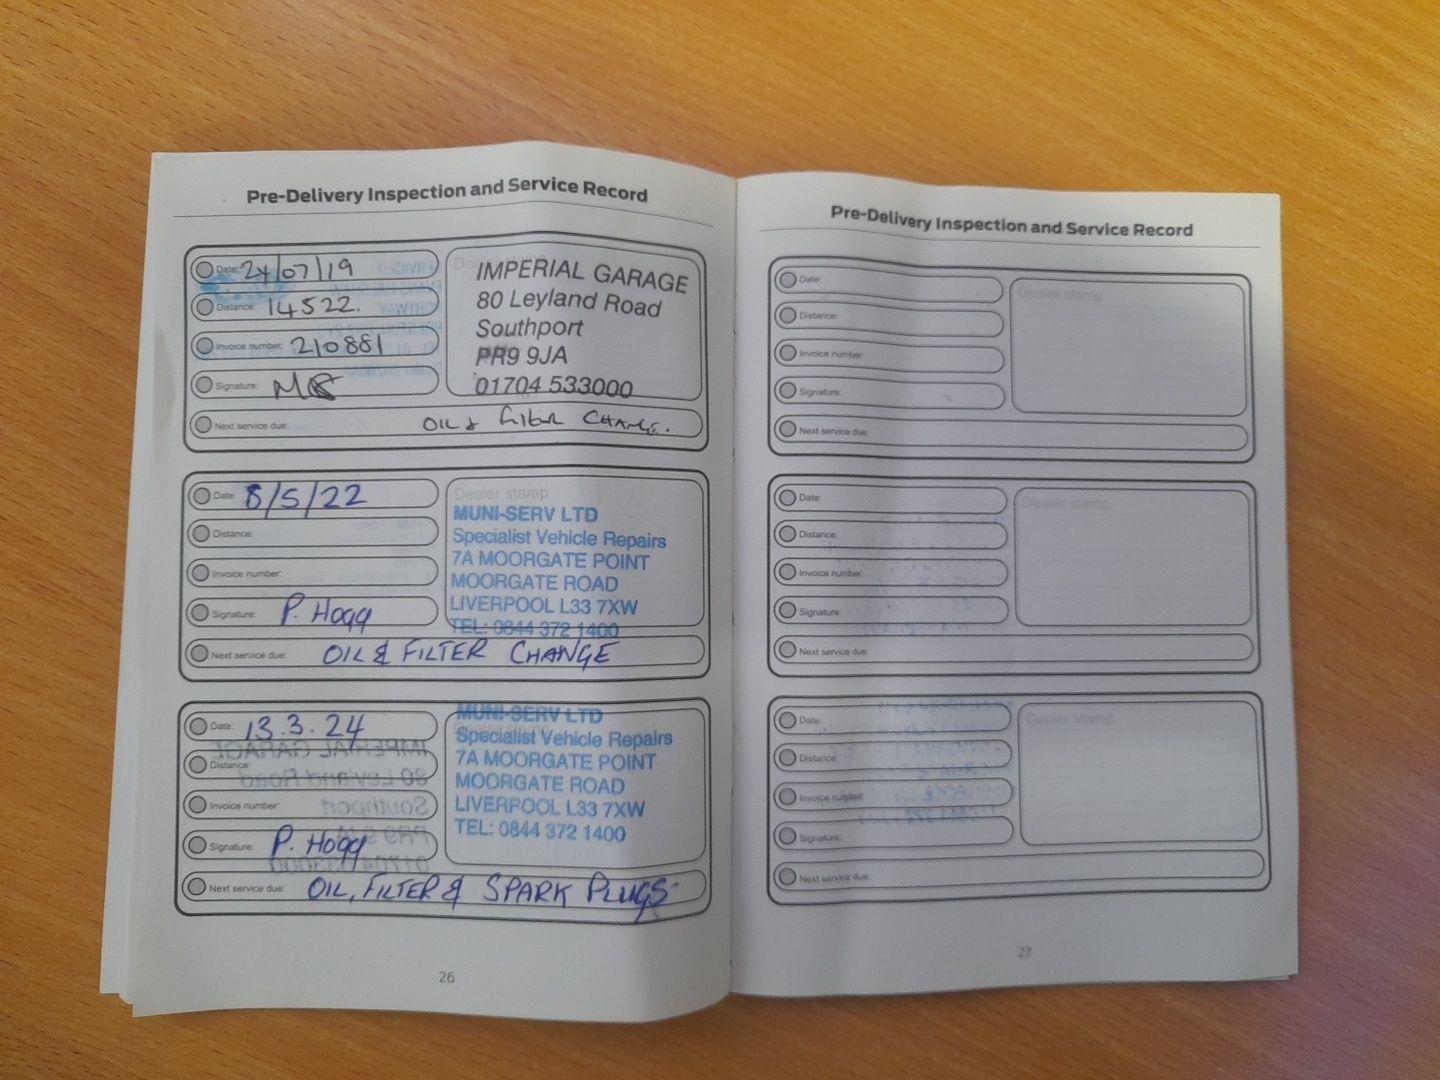 Pre-Delivery Inspection and Service Record
Date: 24/07/19
Distance: 14522.
Invoice number: 210881
Signature:
Dealer stamp
IMPERIAL GARAGE
80 Leyland Road
Southport
PR9 9JA
01704 533000
Next service due: OIL & FILTER CHANGE.
Date: 8/5/22
Distance:
Invoice number:
Signature: P. Hogg
Dealer stamp
MUNI-SERV LTD
Specialist Vehicle Repairs
7A MOORGATE POINT
MOORGATE ROAD
LIVERPOOL L33 7XW
TEL: 0844 372 1400
Next service due: OIL & FILTER CHANGE
Date: 13.3.24
Distance:
Invoice number:
Signature: P. Hogg
MUNI-SERV LTD
Specialist Vehicle Repairs
7A MOORGATE POINT
MOORGATE ROAD
LIVERPOOL L33 7XW
TEL: 0844 372 1400
Next service due: OIL, FILTER & SPARK PLUGS
26
Pre-Delivery Inspection and Service Record
Date:
Distance:
Invoice number:
Signature:
Dealer stamp
Next service due:
Date:
Distance:
Invoice number:
Signature:
Dealer stamp
Next service due:
Date:
Distance:
Invoice number:
Signature:
Dealer stamp
Next service due:
27